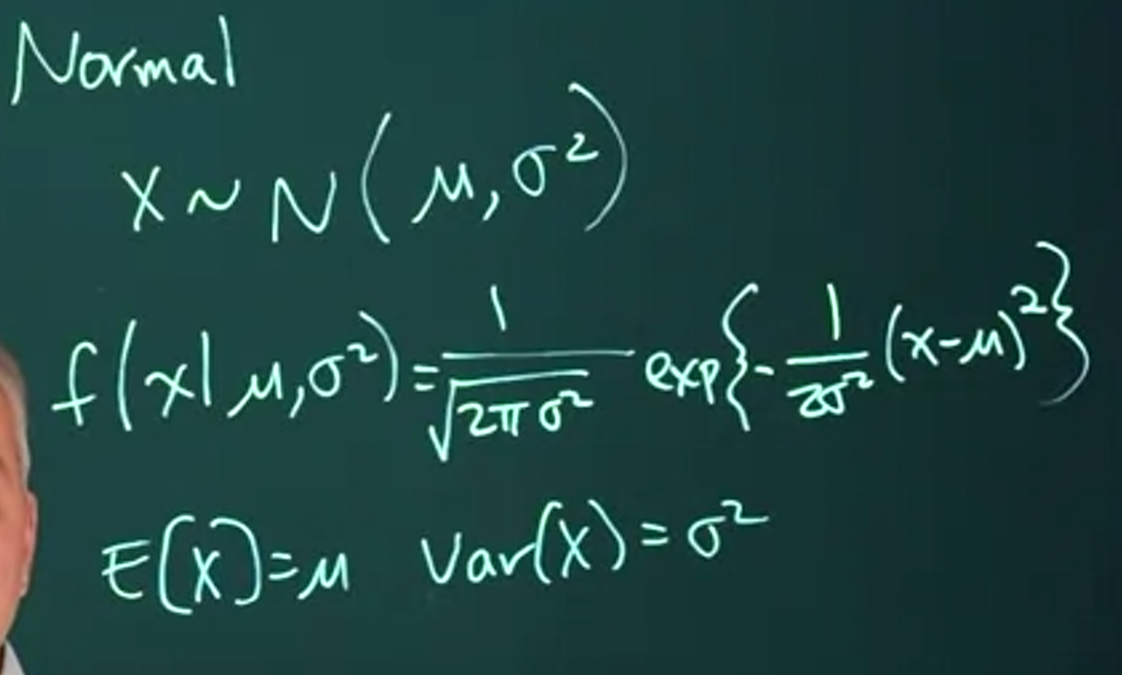 Normal
X ~ N(μ, σ²)
f(x|μ,σ²) = 1/√(2πσ²) exp{-1/(2σ²) (x-μ)²}
E[X]=μ Var(X)=σ²